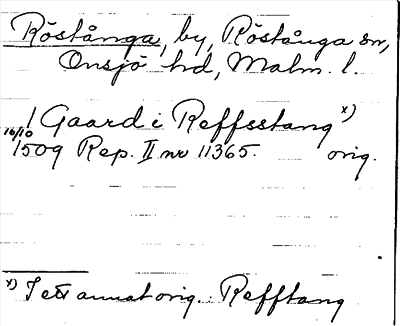 Röstånga, by, Röstånga sn,
Onsjö hd, Malm. l.
1 Gaard i Reffsstang x)
16/10 1509 Rep. II nr 11365. orig.
x) I ett annat orig. Refftang